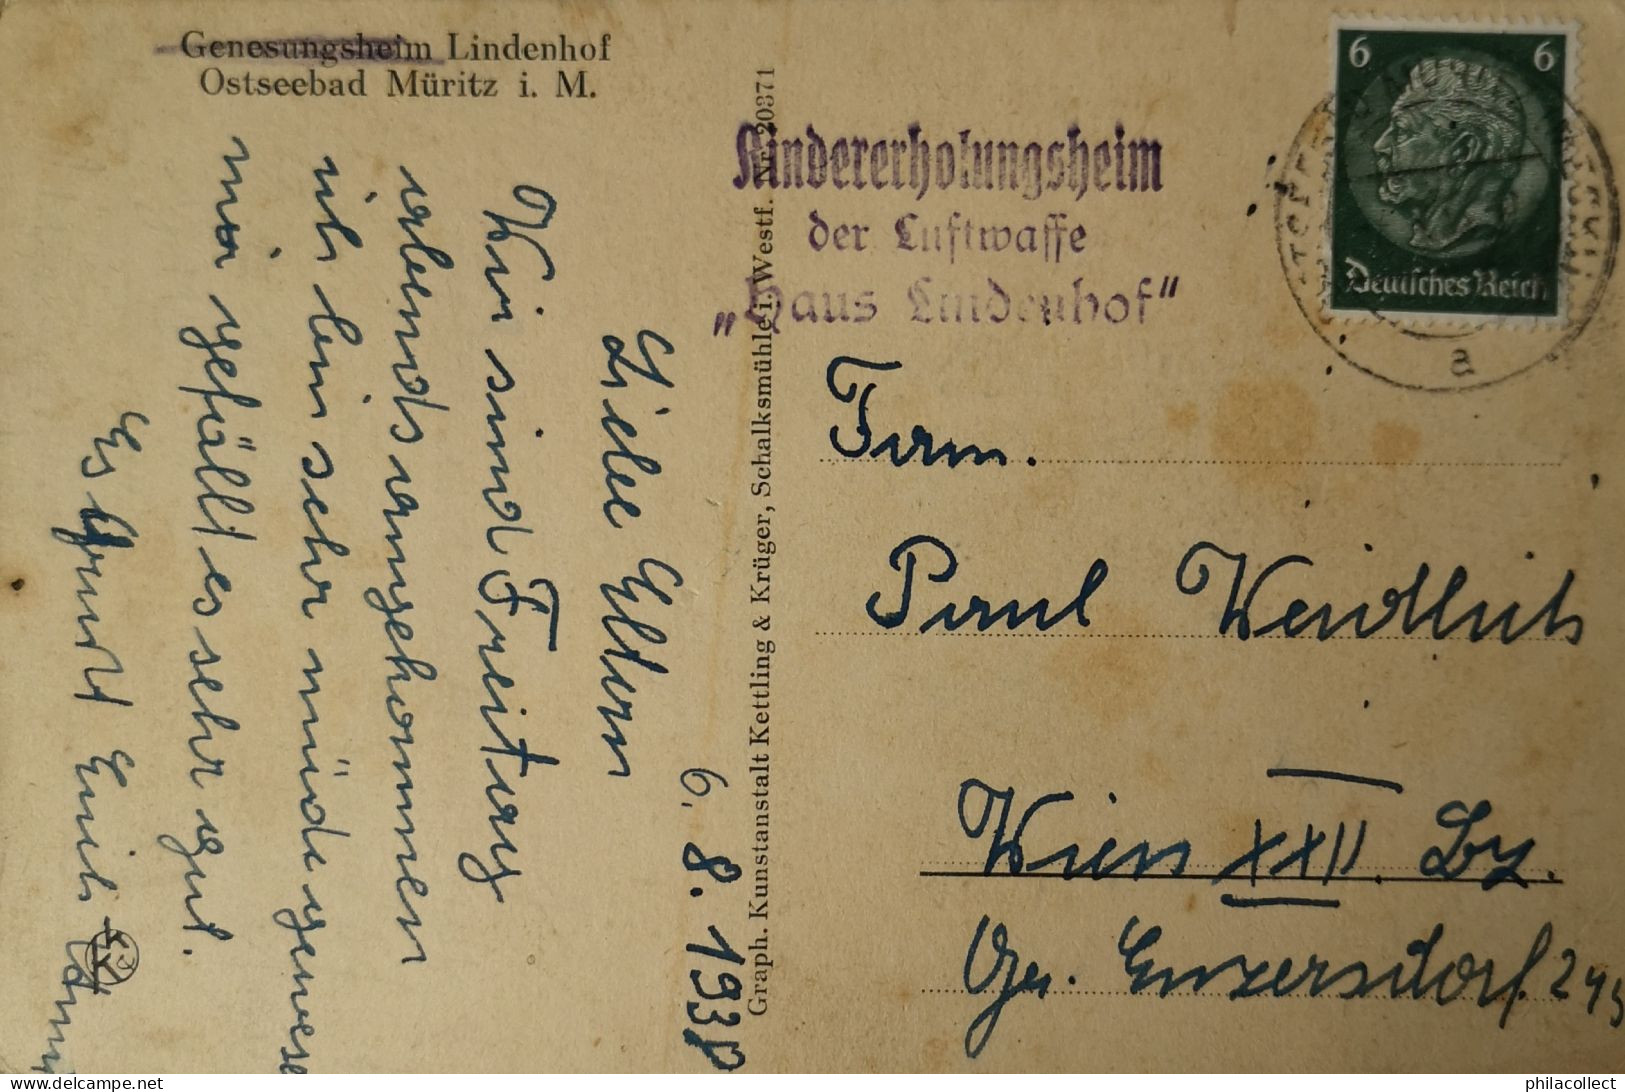 Genesungsheim Lindenhof
Ostseebad Müritz i. M.
6. 8. 1938
Liebe Eltern
Wir sind Freitag
abends angekommen
ich bin sehr müde gewesen
mir gefällt es sehr gut.
Es Grust Euch
Graph. Kunstanstalt Kettling & Krüger, Schalksmühle i. Westf. Nr. 20371
Kindererholungsheim
der Luftwaffe
„Haus Lindenhof"
6 6
Deutsches Reich
a
Firm.
Paul Weidlich
Wien XXII. Bz.
Gr. Enzersdorf 245
philacollect